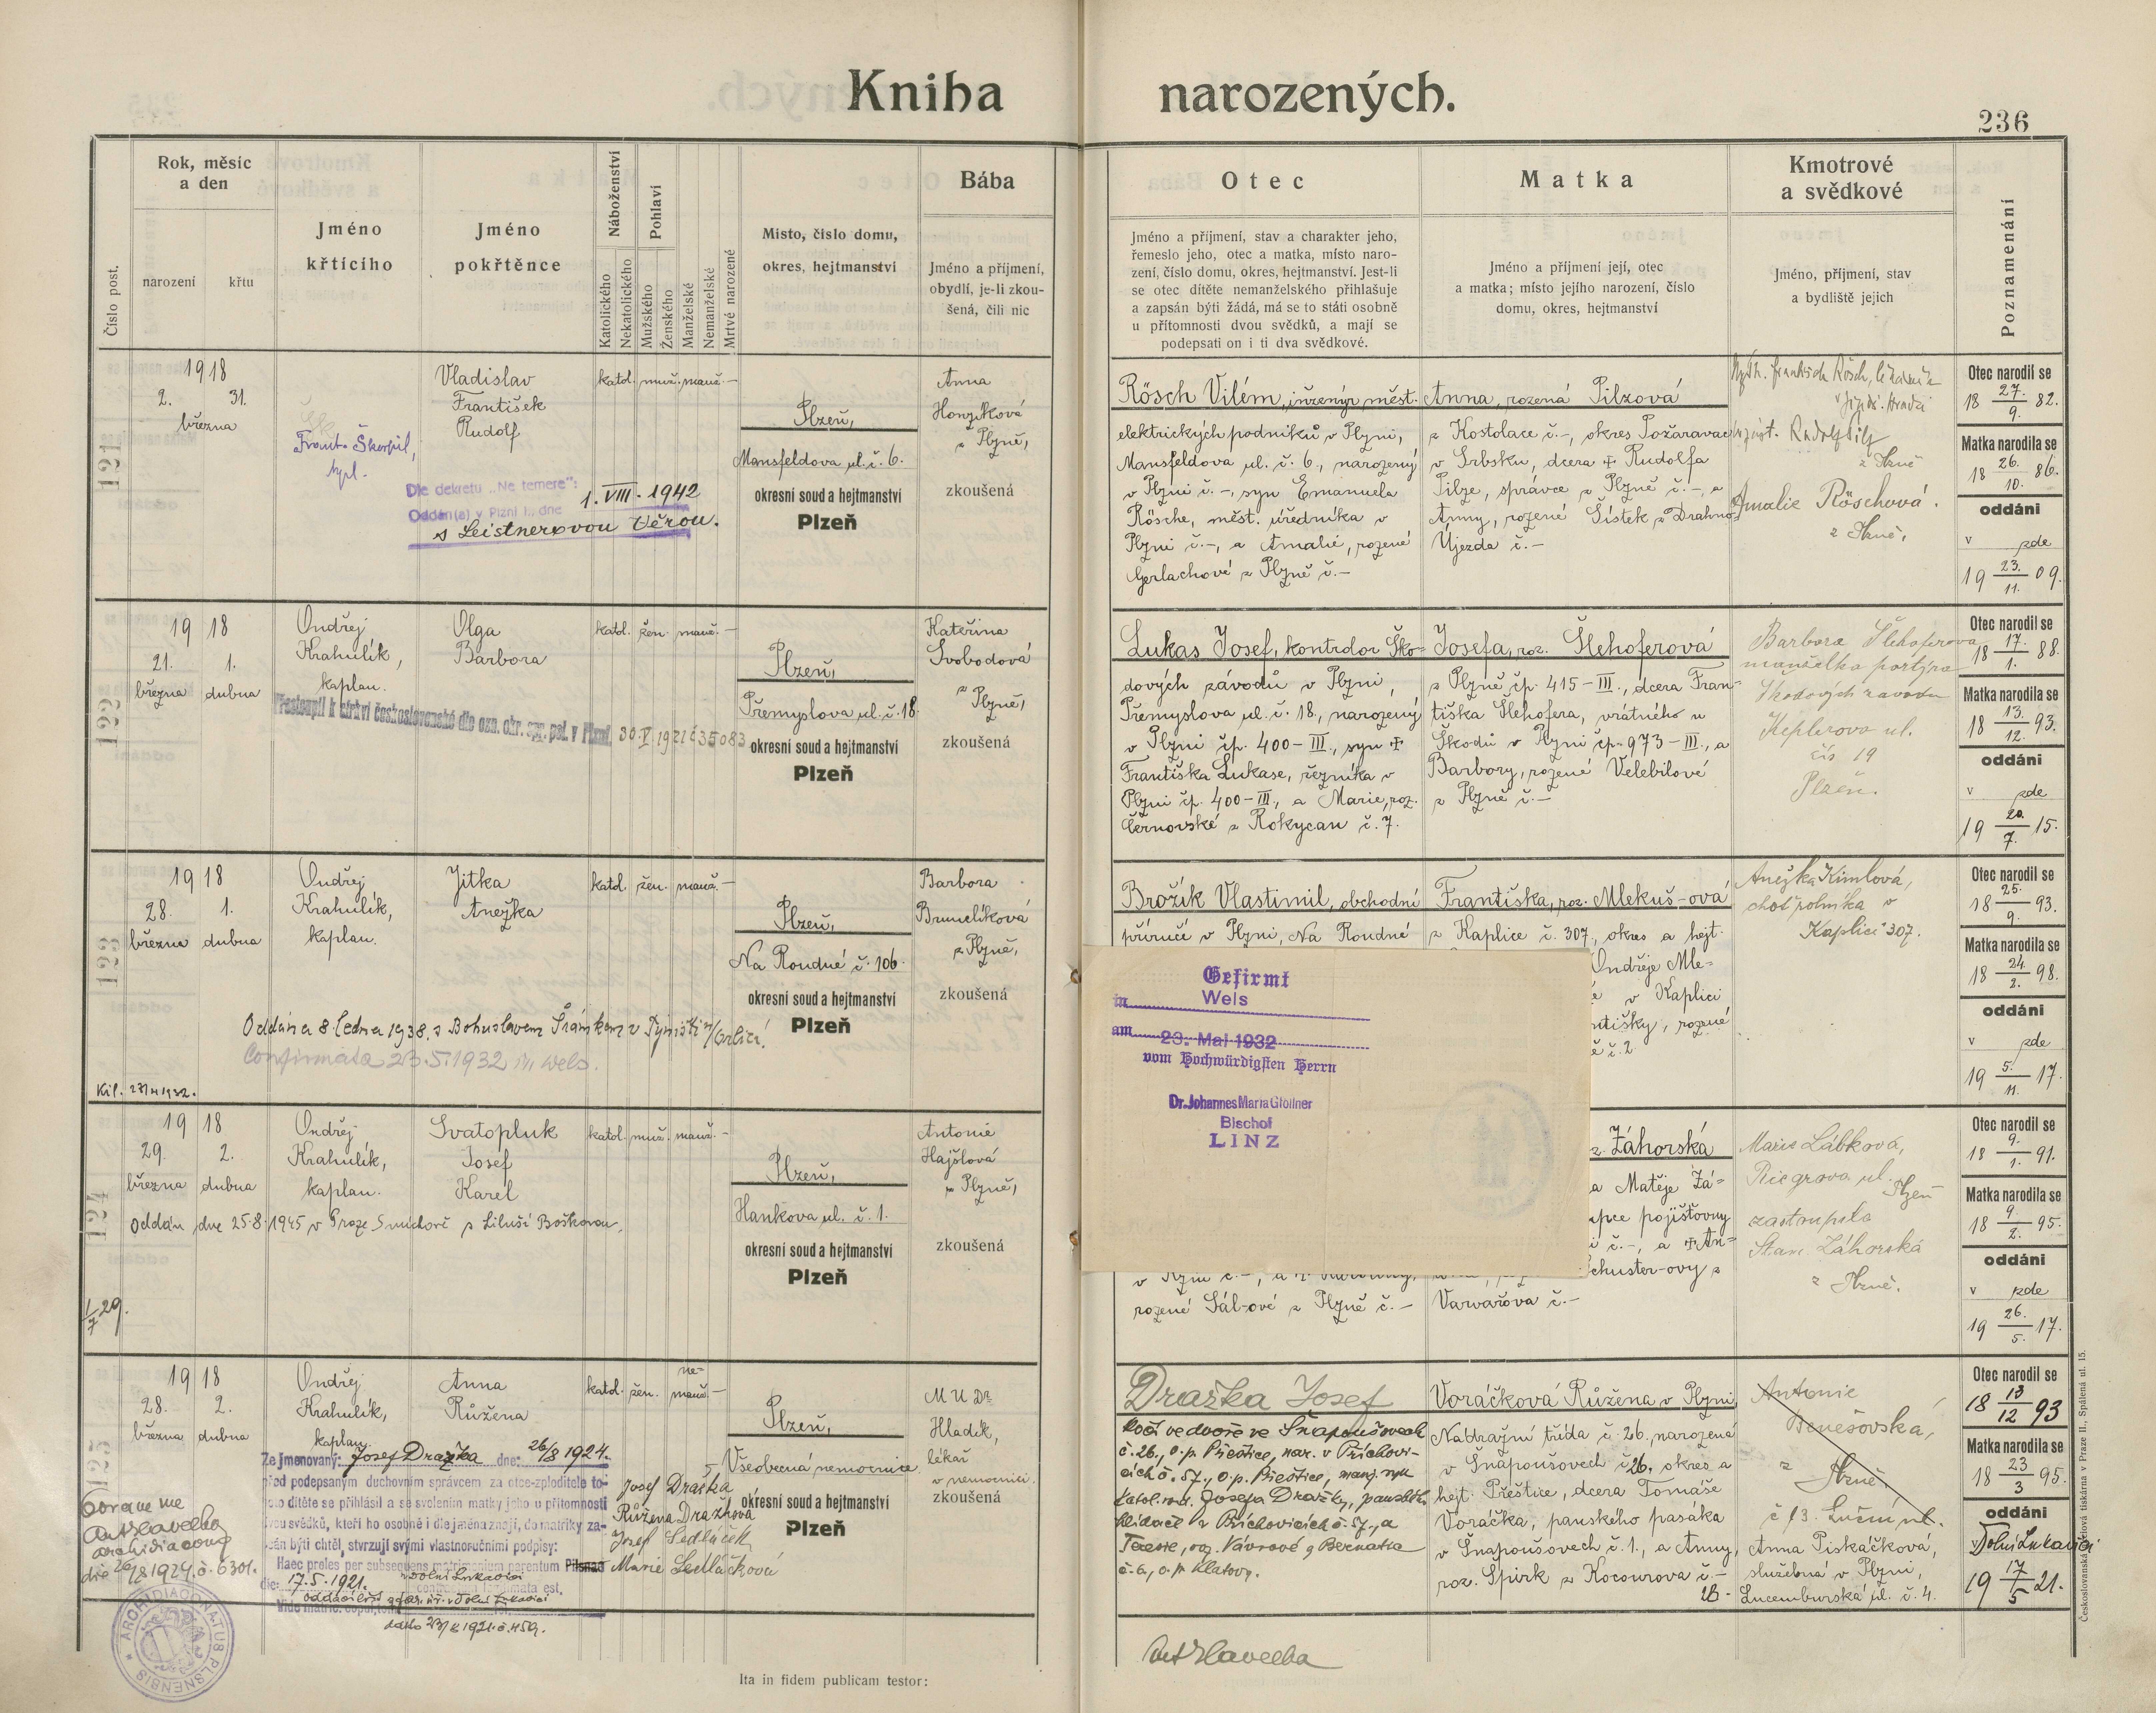 Kniha narozených.
236
Číslo post.
Rok, měsíc
a den
narození
křtu
Jméno
křtícího
Jméno
pokřtěnce
Náboženství
Katolického
Nekatolického
Pohlaví
Mužského
Ženského
Manželské
Nemanželské
Mrtvé narozené
Místo, číslo domu,
okres, hejtmanství
Bába
Jméno a příjmení,
obydlí, je-li zkou-
šená, čili nic
Otec
Jméno a příjmení, stav a charakter jeho,
řemeslo jeho, otec a matka, místo naro-
zení, číslo domu, okres, hejtmanství. Jest-li
se otec dítěte nemanželského přihlašuje
a zapsán býti žádá, má se to státi osobně
u přítomnosti dvou svědků, a mají se
podepsati on i ti dva svědkové.
Matka
Jméno a příjmení její, otec
a matka; místo jejího narození, číslo
domu, okres, hejtmanství
Kmotrové
a svědkové
Jméno, příjmení, stav
a bydliště jejich
Poznamenání
121
1918
2. 31.
března
Frant. Škorpil,
kpl.
Vladislav
František
Rudolf
katol. muž. manž. —
Plzeň,
Mansfeldova ul. č. 6.
okresní soud a hejtmanství
Plzeň
Anna
Honzíková
z Plzně,
zkoušená
Dle dekretu „Ne temere":
Oddán(a) v Plzni I., dne 1. VIII. 1942
s Leistnerovou Věrou.
Rösch Vilém, inženýr měst.
elektrických podniků v Plzni,
Mansfeldova ul. č. 6., narozený
v Plzni č. –, syn Emanuela
Rösche, měst. úředníka v
Plzni č. –, a Amalie, rozené
Gerlachové z Plzně č. –
Anna, rozená Pilzová
z Kostolace č. –, okres Požaravac
v Srbsku, dcera ✝ Rudolfa
Pilze, správce z Plzně č. –, a
Anny, rozené Šístek z Drahno-
Újezda č. –
František Rösch,
Rudolf Pilz
z Plzně
Amalie Röschová.
z Plzně,
Otec narodil se
18 27./9. 82.
Matka narodila se
18 26./10. 86.
oddáni
v zde
19 23./11. 09.
122
19 18
21. 1.
března dubna
Ondřej
Krahulík,
kaplan.
Olga
Barbora
katol. žen. manž. —
Plzeň,
Přemyslova ul. č. 18.
okresní soud a hejtmanství
Plzeň
Kateřina
Svobodová
z Plzně,
zkoušená
Přestoupil k církvi československé dle ozn. okr. spr. pol. v Plzni 30. V. 1921 č 35083
Lukas Josef, kontrolor Ško-
dových závodů v Plzni,
Přemyslova ul. č. 18., narozený
v Plzni čp. 400–III., syn ✝
Františka Lukase, řezníka v
Plzni čp. 400–III., a Marie, roz.
Černovské z Rokycan č. 7.
Josefa, roz. Šlehoferová
z Plzně čp. 415–III., dcera Fran-
tiška Šlehofera, vrátného u
Škodů v Plzni čp. 973–III., a
Barbory, rozené Velebilové
z Plzně č. –
Barbora Šlehoferova
manželka portýra
Škodových závodu
Keplerova ul.
čís 19
Plzeň.
Otec narodil se
18 17./1. 88.
Matka narodila se
18 13./12. 93.
oddáni
v zde
19 20./7. 15.
123
1918
28. 1.
března dubna
Ondřej
Krahulík,
kaplan.
Jitka
Anežka
katol. žen. manž. —
Plzeň,
Na Roudné č. 106.
okresní soud a hejtmanství
Plzeň
Barbora
Brunclíková
z Plzně,
zkoušená
Oddána 8. ledna 1938. s Bohuslavem Šrámkem v Týništi n/Orlicí.
Confirmata 23.5.1932 in Wels.
Brožík Vlastimil, obchodní
příručí v Plzni, Na Roudné
Františka, roz. Mlekuš-ová
z Kaplice č. 307., okres a hejt.
Ondřeje Mle-
v Kaplici
ntišky, rozené
č. 2.
Gefirmt
in Wels
am 23. Mai 1932
vom Hochwürdigsten Herrn
Dr. Johannes Maria Gföllner
Bischof
LINZ
Anežka Kimlová,
choť rolníka v
Kaplici 307.
Otec narodil se
18 25./9. 93.
Matka narodila se
18 24./2. 98.
oddáni
v zde
19 5./11. 17.
124
19 18
29. 2.
března dubna
Ondřej
Krahulík,
kaplan.
Svatopluk
Josef
Karel
katol. muž. manž. —
Plzeň,
Hankova ul. č. 1.
okresní soud a hejtmanství
Plzeň
Antonie
Hajšlová
z Plzně,
zkoušená
Oddán dne 25.8.1945 v Praze Smíchově s Liluší Boškovou.
1/7 29.
rozené Sál-ové z Plzně č. –
Záhorská
a Matěje Zá-
upce pojišťovny
i č. –, a ✝ An-
chuster-ovy z
Varvažova č. –
Marie Lábková,
Riegrova ul.
Plzeň
zastoupila
Stan. Záhorská
z Plzně.
Otec narodil se
18 9./1. 91.
Matka narodila se
18 9./2. 95.
oddáni
v zde
19 26./5. 17.
125
19 18
28. 2.
března dubna
Ondřej
Krahulík,
kaplan.
Anna
Růžena
katol. žen. ne-
manž. —
Plzeň,
Všeobecná nemocnice.
okresní soud a hejtmanství
Plzeň
MUDr
Hladík,
lékař
v nemocnici.
zkoušená
Ze jmenovaný: Josef Dražka dne: 26/8 1924.
před podepsaným duchovním správcem za otce-zploditele to-
hoto dítěte se přihlásil a se svolením matky jeho u přítomnosti
dvou svědků, kteří ho osobně i dle jména znají, do matriky za-
psán býti chtěl, stvrzují svými vlastnoručními podpisy:
Haec proles per subsequens matrimonium parentum Pilsnae
die: 17.5.1921. v Dolní Lukavici
contractum legitimata est.
Josef Dražka
Růžena Dražková
Josef Sedláček
Marie Sedláčková
archidiakonus
ARCHIDIACONATUS PLSNENSIS
Dražka Josef
kočí ve dvoře ve Snapoušovech
č. 26., o.p. Přeštice, nar. v Příchovi-
cích č. 57., o.p. Přeštice, manž. syn
katol. rod. Josefa Dražky, panského
hlídače v Příchovicích č. 57., a
Terezie, roz. Vávrové z Bernatic
č. 6., o.p. Klatovy.
Voráčková Růžena v Plzni,
Nádražní třída č. 26., narozená
v Snapoušovech č. 26., okres a
hejt. Přeštice, dcera Tomáše
Voráčka, panského pasáka
v Snapoušovech č. 1., a Anny,
roz. Spirk z Kocourova č. –
28.
Antonie
Benešovská,
z Plzně.
č 13. Luční ul.
Anna Piskáčková,
služebná v Plzni,
Lucemburská ul. č. 4.
Otec narodil se
18 13/12 93
Matka narodila se
18 23/3 95.
oddáni
v Dolní Lukavici
19 17/5 21.
Ita in fidem publicam testor:
Československá akciová tiskárna v Praze II., Spálená ul. 15.